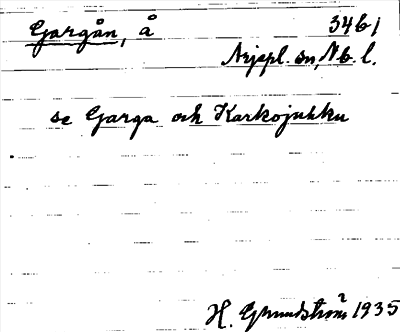 Gargån, å 346/
Arjepl. sn, Nb. l.
se Garga och Karkojuhku
H. Grundström 1935